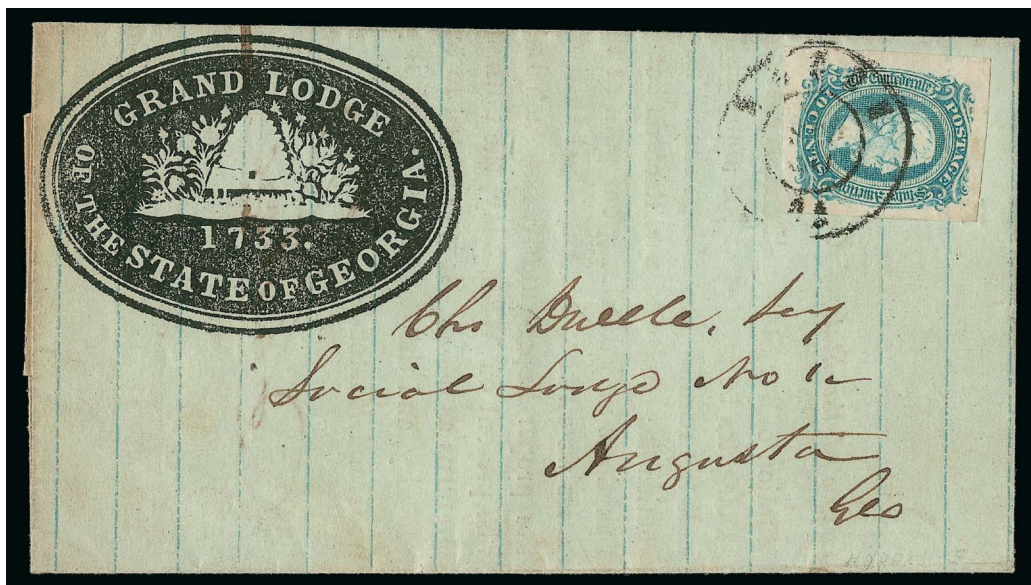 GRAND LODGE
OF THE STATE OF GEORGIA.
1733.
The Confederate
States of America
POSTAGE
TEN CENTS
Chs
Social Lodge No 1
Augusta
Geo